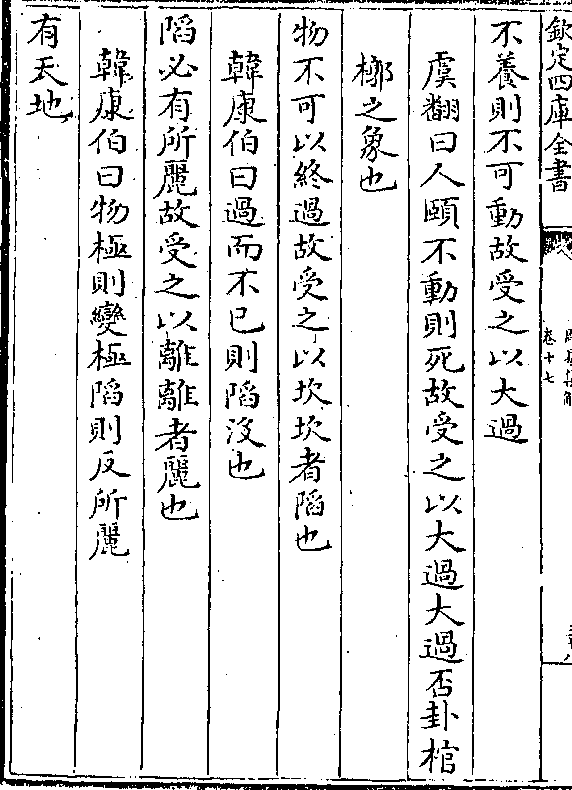 欽定四庫全書
卷十七
不養則不可動故受之以大過
虞翻曰人頤不動則死故受之以大過大過否卦棺
槨之象也
物不可以終過故受之以坎坎者陷也
韓康伯曰過而不已則陷沒也
陷必有所麗故受之以離離者麗也
韓康伯曰物極則變極陷則反所麗
有天地